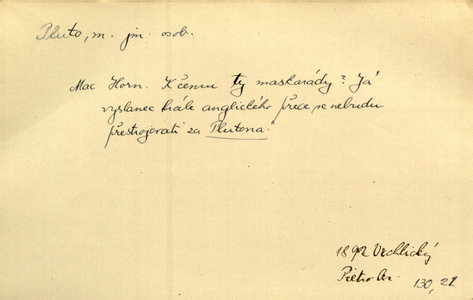 Pluto, m. jm. osob.
Mac Horn. K čemu ty maskarády? Já
vyslanec krále anglického přece se nebudu
přestrojovati za Plutona.
1892 Vrchlický
Pietro Ar. 130, 21